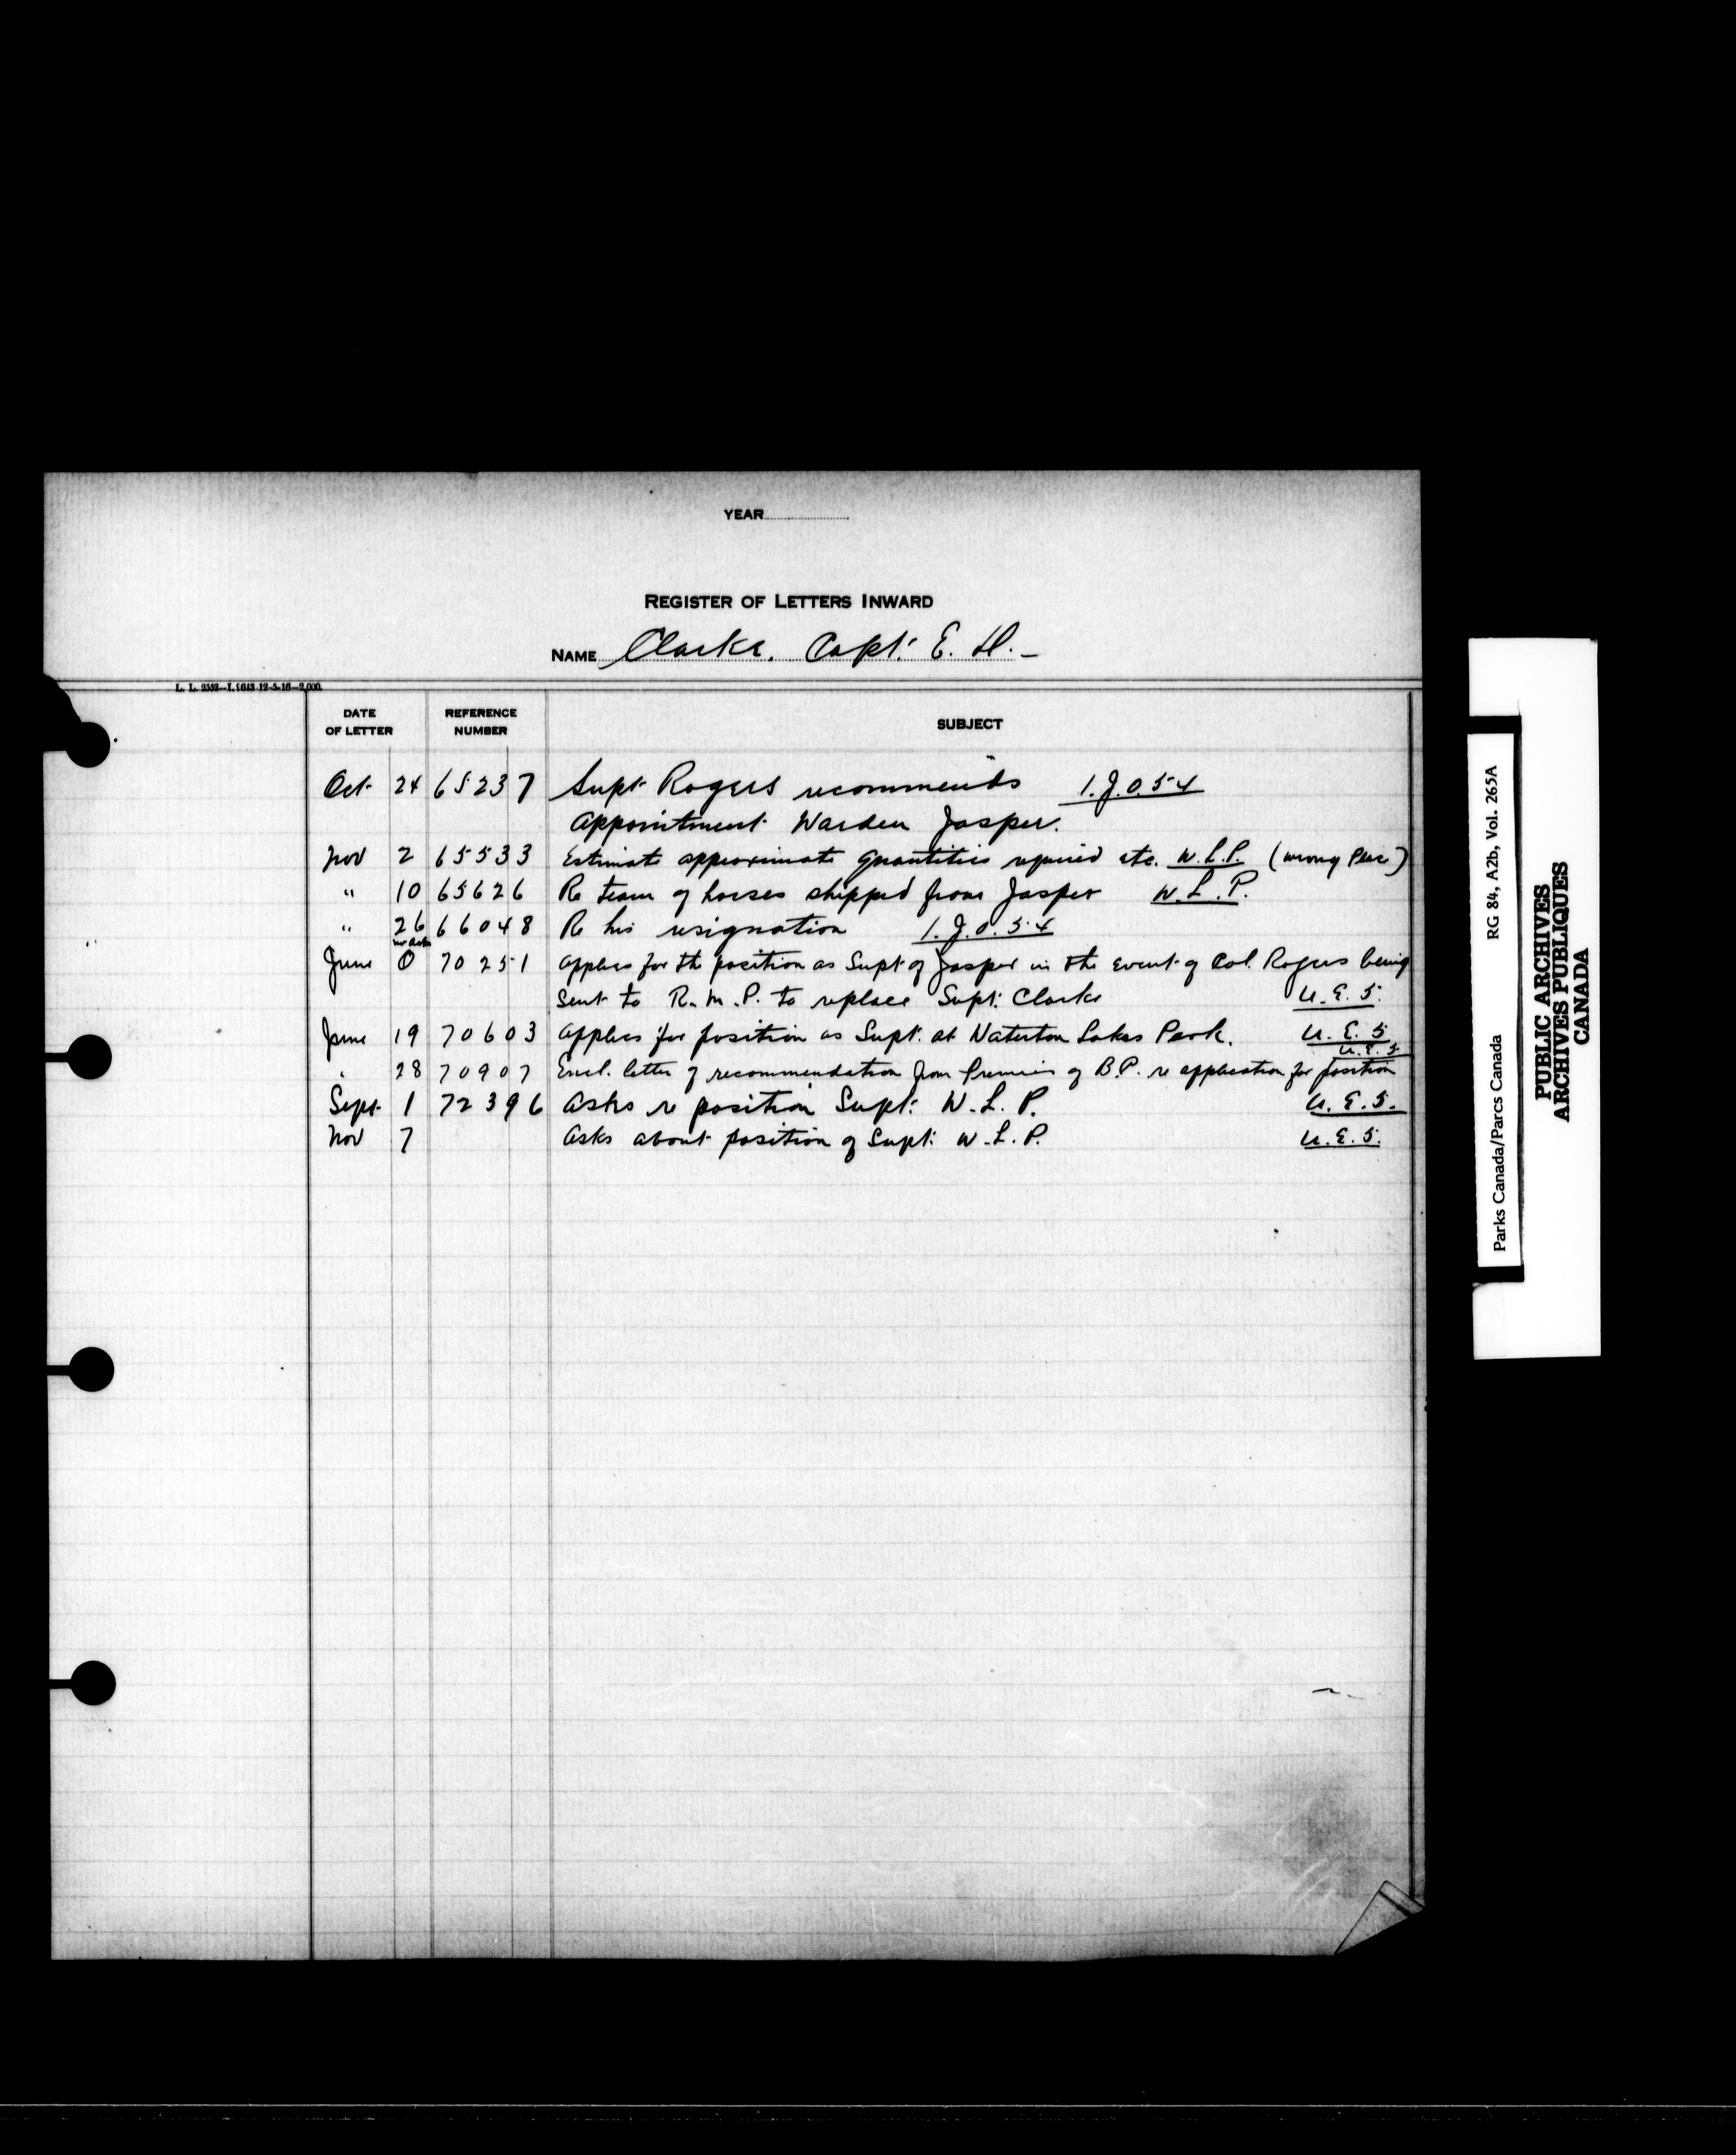 YEAR
REGISTER OF LETTERS INWARD
NAME Clarke. Capt. E. H. -
L. L. 2552-I. 1643-12-5-16-2,000.
DATE OF LETTER REFERENCE NUMBER SUBJECT
Oct 24 65237 Supt Rogers recommends 1.J.0.54
Appointment Warden Jasper.
Nov 2 65533 Estimate approximate quantities required etc. W.L.P. (wrong Place)
" 10 65626 Re team of horses shipped from Jasper W.L.P.
" 26 66048 Re his resignation 1.J.0.54
no date
June 0 70251 Applies for the position as Supt of Jasper in the event of Col. Rogers being
sent to R.M.P. to replace Supt. Clarke U.E.5.
June 19 70603 Applies for position as Supt. at Waterton Lakes Park. U.E.5
U.E.5
" 28 70907 Encl. letter of recommendation from Premier of B.P. re application for position
Sept 1 72396 Asks re position Supt. W.L.P. U.E.5.
Nov 7 Asks about position of Supt. W.L.P. U.E.5.
Parks Canada/Parcs Canada RG 84, A2b, Vol. 265A
PUBLIC ARCHIVES
ARCHIVES PUBLIQUES
CANADA